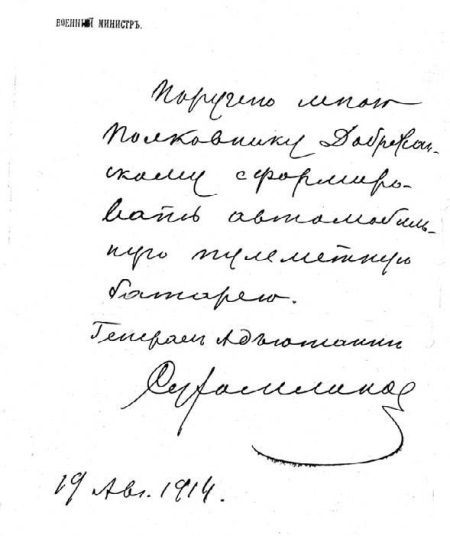 ВОЕННЫЙ МИНИСТРЪ.
Поручено мною
Полковнику Добржан-
скому сформиро-
вать автомобиль-
ную пулеметную
батарею.
Генералъ Адъютантъ
Сухомлиновъ
19 Авг. 1914.